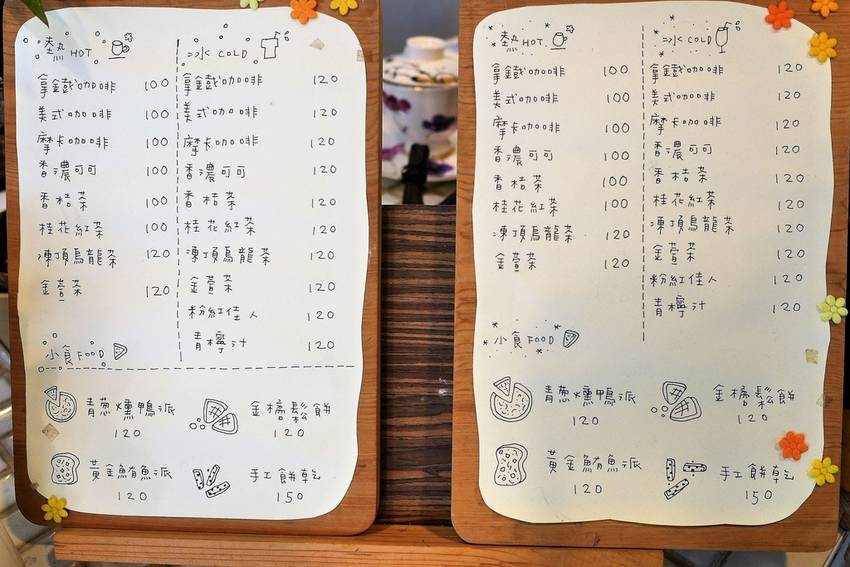 熱 HOT
拿鐵咖啡 100
美式咖啡 100
摩卡咖啡 100
香濃可可 100
香桔茶 100
桂花紅茶 100
凍頂烏龍茶 120
金萱茶 120
冰 COLD
拿鐵咖啡 120
美式咖啡 120
摩卡咖啡 120
香濃可可 120
香桔茶 120
桂花紅茶 120
凍頂烏龍茶 120
金萱茶 120
粉紅佳人 120
青檸汁 120
小食 FOOD
青蔥燻鴨派
120
金橘鬆餅
120
黃金鮪魚派
120
手工餅乾
150
熱 HOT
拿鐵咖啡 100
美式咖啡 100
摩卡咖啡 100
香濃可可 100
香桔茶 100
桂花紅茶 100
凍頂烏龍茶 120
金萱茶 120
冰 COLD
拿鐵咖啡 120
美式咖啡 120
摩卡咖啡 120
香濃可可 120
香桔茶 120
桂花紅茶 120
凍頂烏龍茶 120
金萱茶 120
粉紅佳人 120
青檸汁 120
小食 FOOD
青蔥燻鴨派
120
金橘鬆餅
120
黃金鮪魚派
120
手工餅乾
150